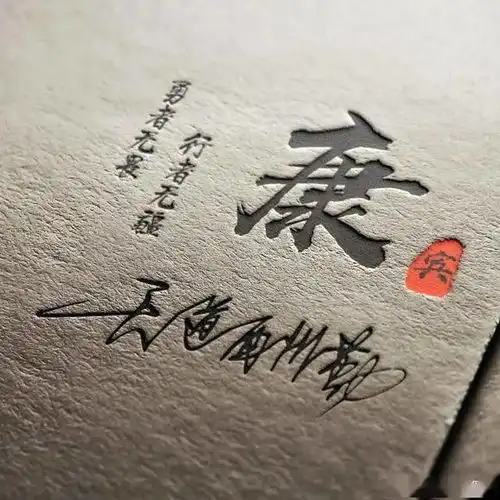 勇者无畏
行者无疆
康
宾
天道酬勤